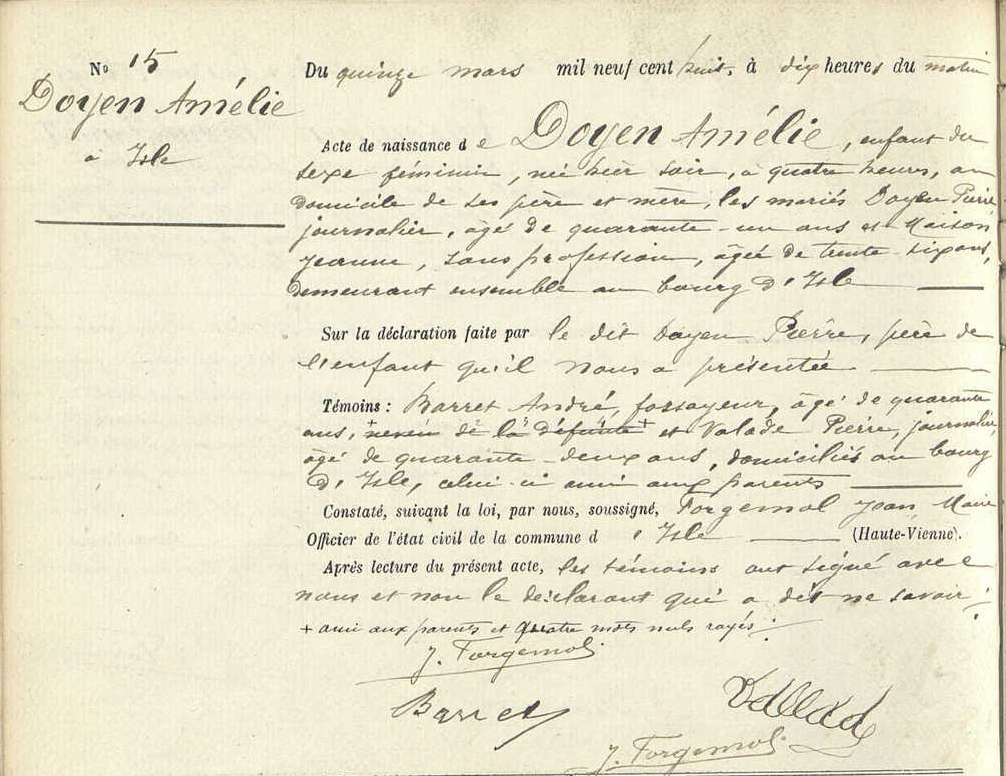 No 15
Doyen Amélie
à Isle
Du quinze mars mil neuf cent huit, à dix heures du matin
Acte de naissance de Doyen Amélie, enfant du
sexe féminin, née hier soir, à quatre heures, au
domicile de ses père et mère, les mariés Doyen Pierre
journalier, âgé de quarante-un ans et Maison
Jeanne, sans profession, âgée de trente-six ans,
demeurant ensemble au bourg d'Isle
Sur la déclaration faite par le dit Doyen Pierre, père de
l'enfant qu'il nous a présentée
Témoins : Barret André, fossoyeur, âgé de quarante
ans, + neveu de la défunte + et Valade Pierre, journalier,
âgé de quarante-deux ans, domiciliés au bourg
d'Isle, celui-ci ami aux parents
Constaté, suivant la loi, par nous, soussigné, Forgemol Jean, Maire
Officier de l'état civil de la commune d'Isle (Haute-Vienne).
Après lecture du présent acte, les témoins ont signé avec
nous et non le déclarant qui a dit ne savoir ;
+ ami aux parents et quatre mots nuls rayés :
J. Forgemol
Barret
Vallade
J. Forgemol